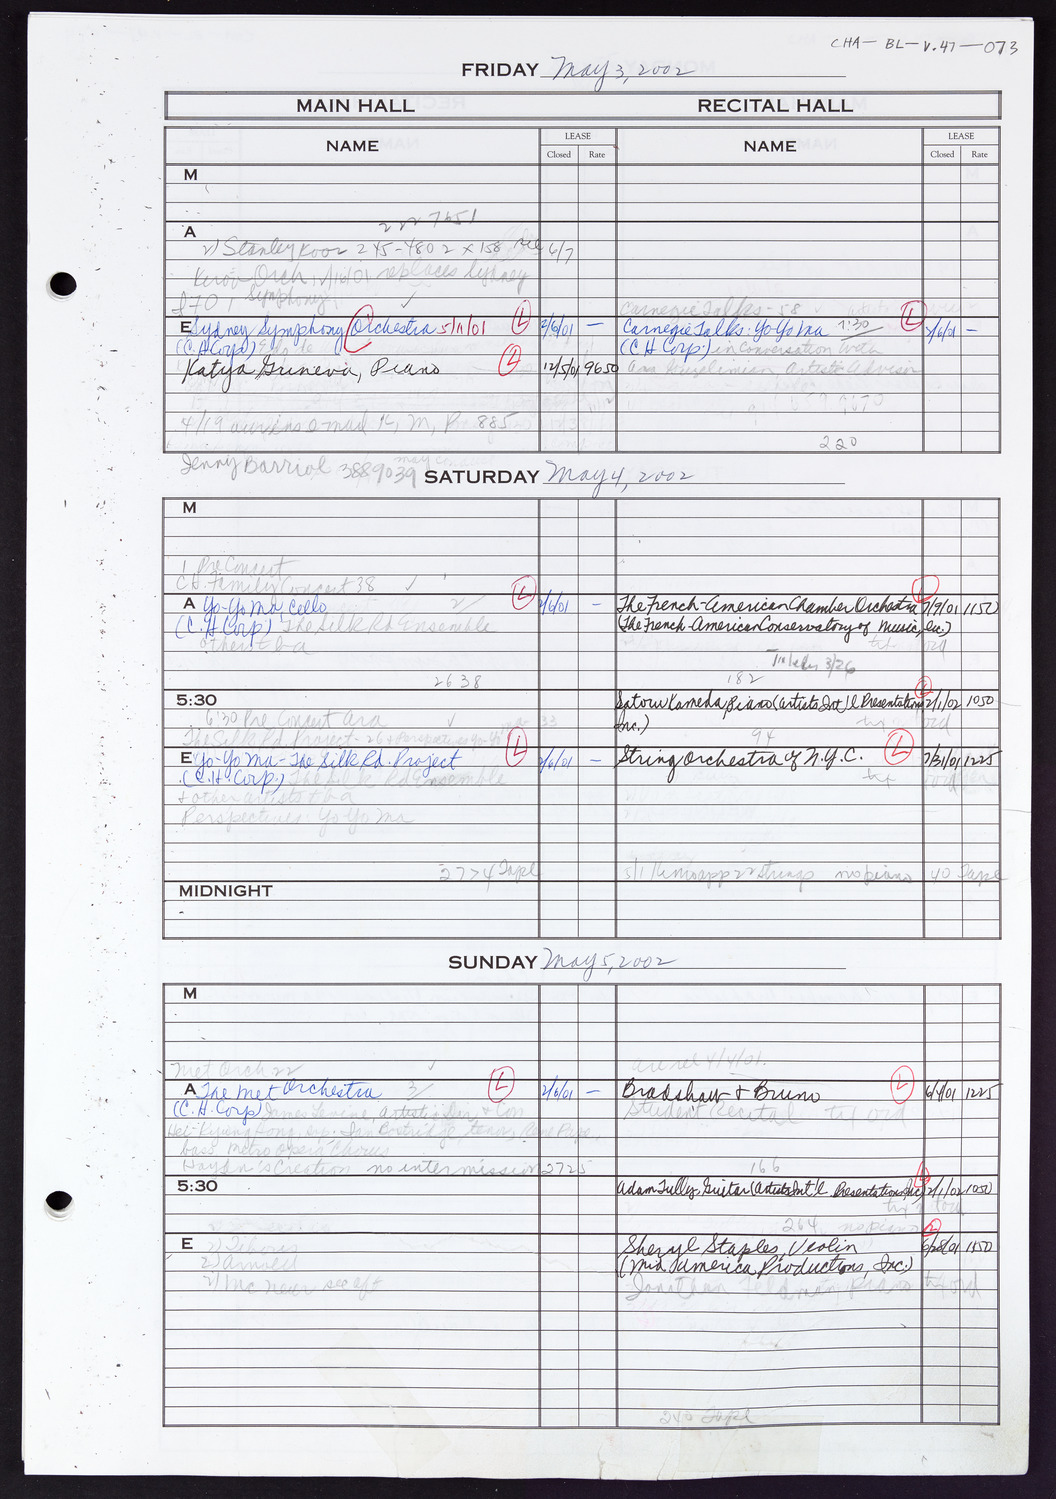 CHA-BL-V.47-073
FRIDAY May 3, 2002
MAIN HALL RECITAL HALL
NAME LEASE NAME LEASE
Closed Rate Closed Rate
M
222 7651
A
2) Stanley Koor 245-4802 x 158 6/7
Kirov Orch 1/16/01 replaces Sydney
Symphony
Carnegie Talks - 58
E Sydney Symphony Orchestra 5/11/01 L 2/6/01 — Carnegie Talks: Yo-Yo Ma 7:30 L 2/6/01 —
(C.H. Corp.) (C.H. Corp.) in conversation with
Katya Grineva, Piano L 12/5/01 9650 Ara Guzelimian, Artistic Advisor
4/19 885
220
Jenny Barriol 3889039
SATURDAY May 4, 2002
M
1 Pre Concert
C.H. Family Concert 38
A Yo-Yo Ma, Cello L 2/6/01 — The French-American Chamber Orchestra L 7/9/01 1150
(C.H. Corp) The Silk Rd Ensemble (The French-American Conservatory of Music, Inc.)
others tba
3/26
2638 182
5:30 Satoru Kameda, Piano (Artists Int'l Presentations L 2/1/02 1050
6:30 Pre Concert 33 Inc.)
The Silk Rd. Project - 94
E Yo-Yo Ma - The Silk Rd. Project L 2/6/01 — String Orchestra of N.Y.C. L 7/31/01 1225
(C.H. Corp.) The Silk Rd Ensemble
+ other artists tba
Perspectives: Yo Yo Ma
2774 Tape 5/1 22 strings no piano 40 Tape
MIDNIGHT
SUNDAY May 5, 2002
M
Met Orch 22 4/4/01
A The Met Orchestra 3/ L 2/6/01 — Bradshaw + Bruno L 6/4/01 1225
(C.H. Corp) James Levine, Artistic Dir. + Con Student Recital
Hei-Kyung Hong, sop. Ian Bostridge, tenor, Rene Pape,
bass Metro Opera Chorus
Haydn's Creation no intermission 2725 166
5:30 Adam Tully, Guitar (Artists Int'l Presentations, Inc.) L 2/1/02 1050
264 no piano
E Sheryl Staples, Violin L 6/28/01 1150
(Mid America Productions, Inc.)
2) Mc Neer see aft Jonathan Feldman, piano
240 Tape